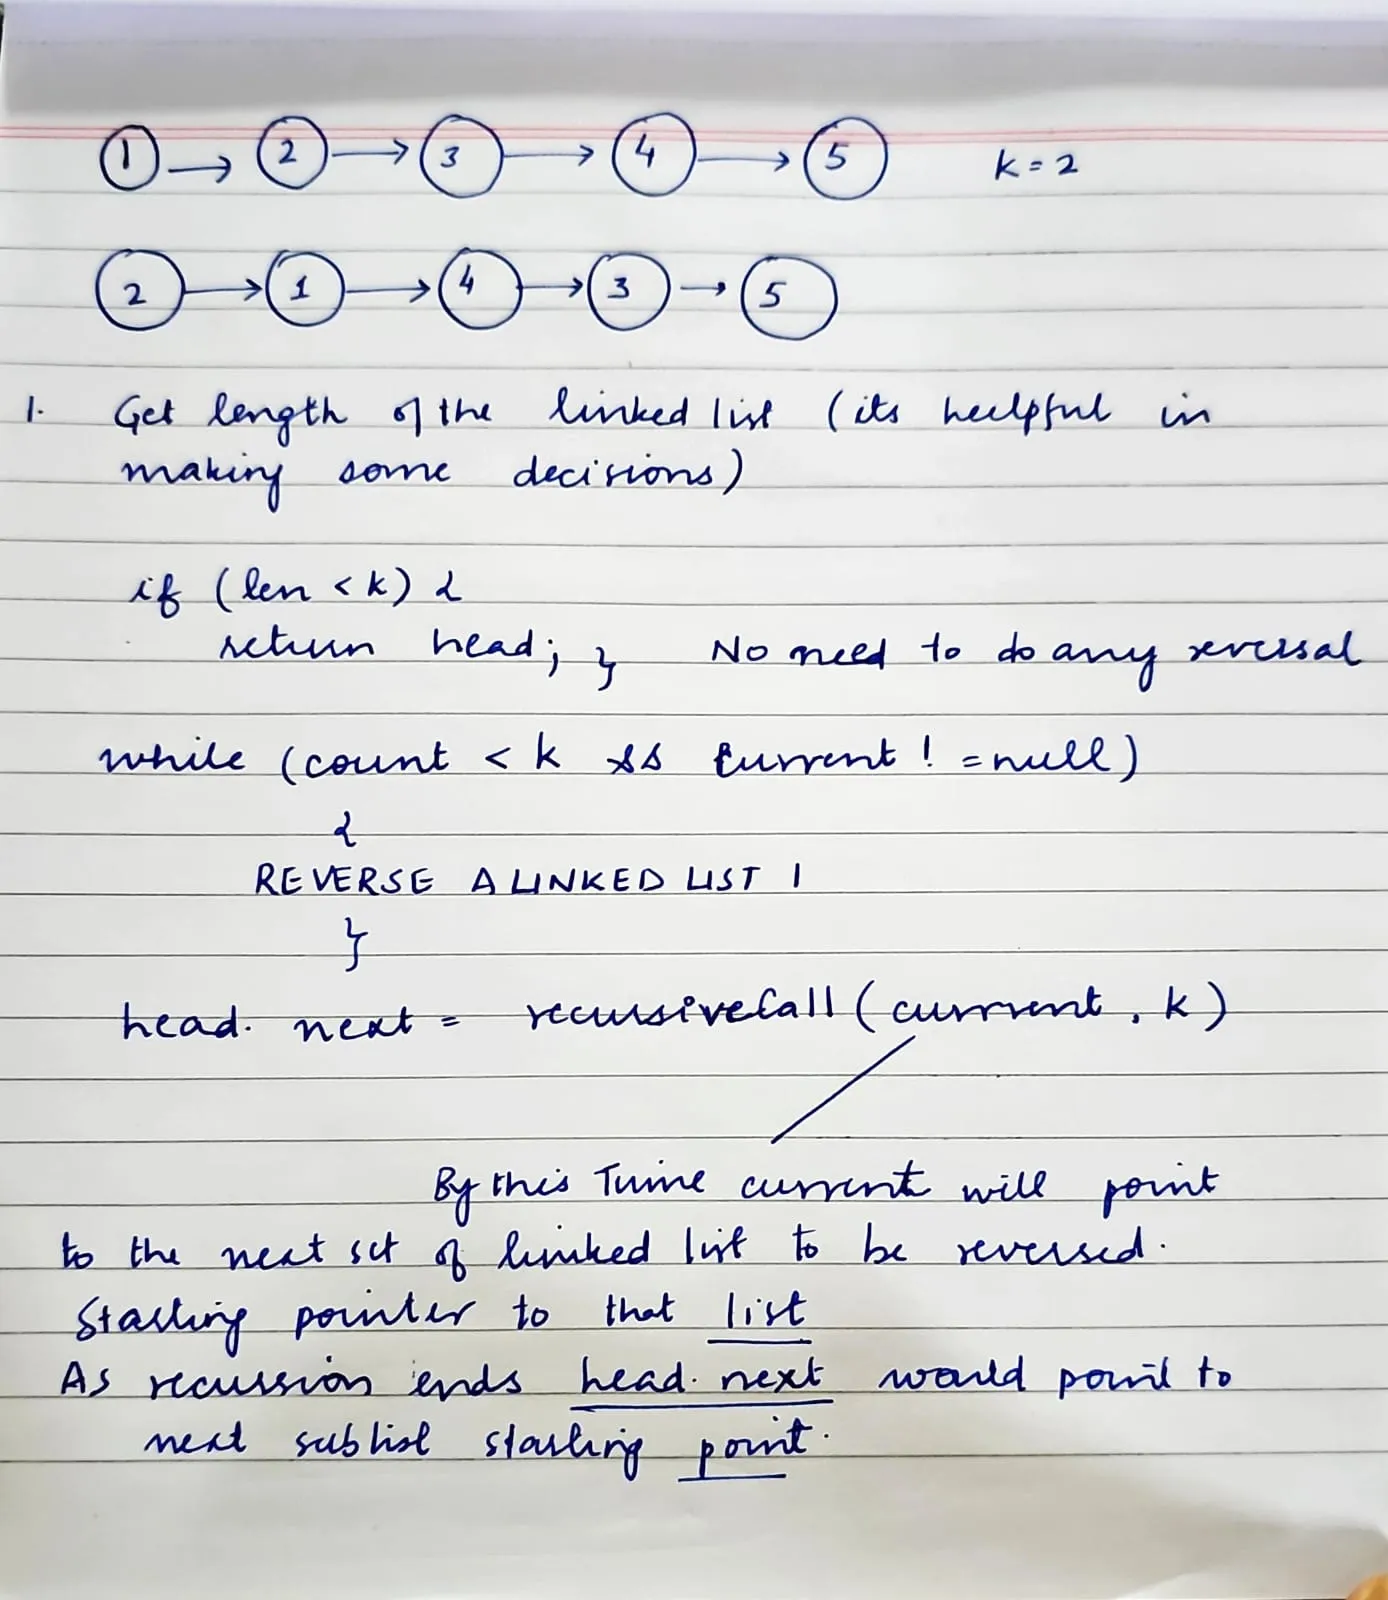 1 → 2 → 3 → 4 → 5 k = 2
2 → 1 → 4 → 3 → 5
1. Get length of the linked list (its heelpful in
making some decisions)
if (len < k) {
return head; } No need to do any reversal
while (count < k && current ! = null)
{
REVERSE A LINKED LIST 1
}
head. next = recursiveCall (current, k)
By this Time current will point
to the next set of linked list to be reversed.
Starting pointer to that list
As recussion ends head. next would point to
next sublist starting point.